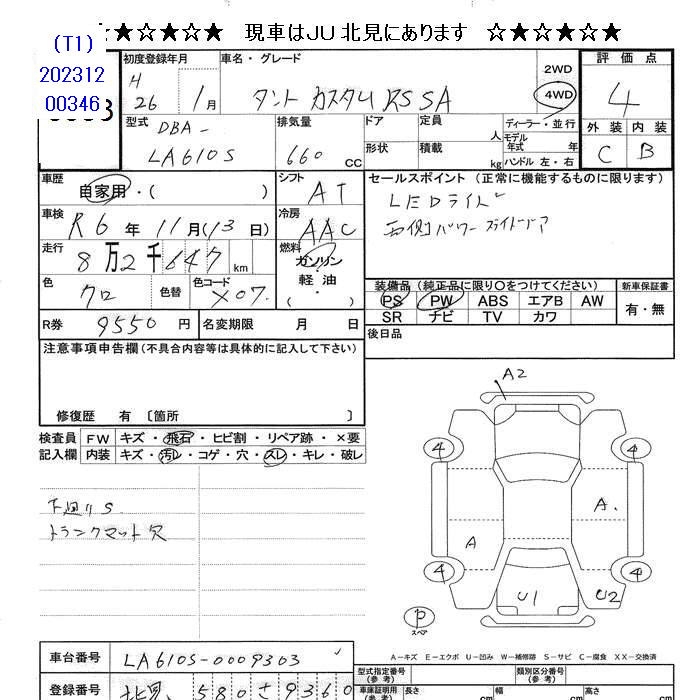 ☆★☆★☆ 現車はJU北見にあります ☆★☆★☆
(T1)
202312
00346
初度登録年月 車名・グレード 評価点
H 26年 1月 タント カスタム RS SA 2WD 4WD 4
型式 DBA- LA610S 排気量 660 CC ドア 形状 定員 人 積載 kg ディーラー・並行 モデル年式 年 ハンドル 左・右 外装 C 内装 B
車歴 自家用・( ) シフト AT セールスポイント (正常に機能するものに限ります)
車検 R6年 11月(13日) 冷房 AAC LEDライト
両側パワースライドドア
走行 8万2千647 km 燃料 ガソリン 軽油 ・( )
色 クロ 色替 色コード X07. 装備品(純正品に限り○をつけてください) 新車保証書
PS PW ABS エアB AW 有・無
SR ナビ TV カワ
R券 9550円 名変期限 月 日 後日品
注意事項申告欄(不具合内容等は具体的に記入して下さい)
修復歴 有 〔箇所 〕
検査員 FW キズ・飛石・ヒビ割・リペア跡・×要
記入欄 内装 キズ・汚レ・コゲ・穴・スレ・キレ・破レ
下廻りS
トランクマット欠
A2
4 4
A.
A
4 4
U1 U2
P
スペア
A-キズ E-エクボ U-凹み W-補修跡 S-サビ C-腐食 XX-交換済
車台番号 LA610S-0009303
型式指定番号 (参考) 類別区分番号 (参考)
登録番号 北見 580 さ 9360
車庫証明用 (参考) 長さ cm 幅 cm 高さ cm